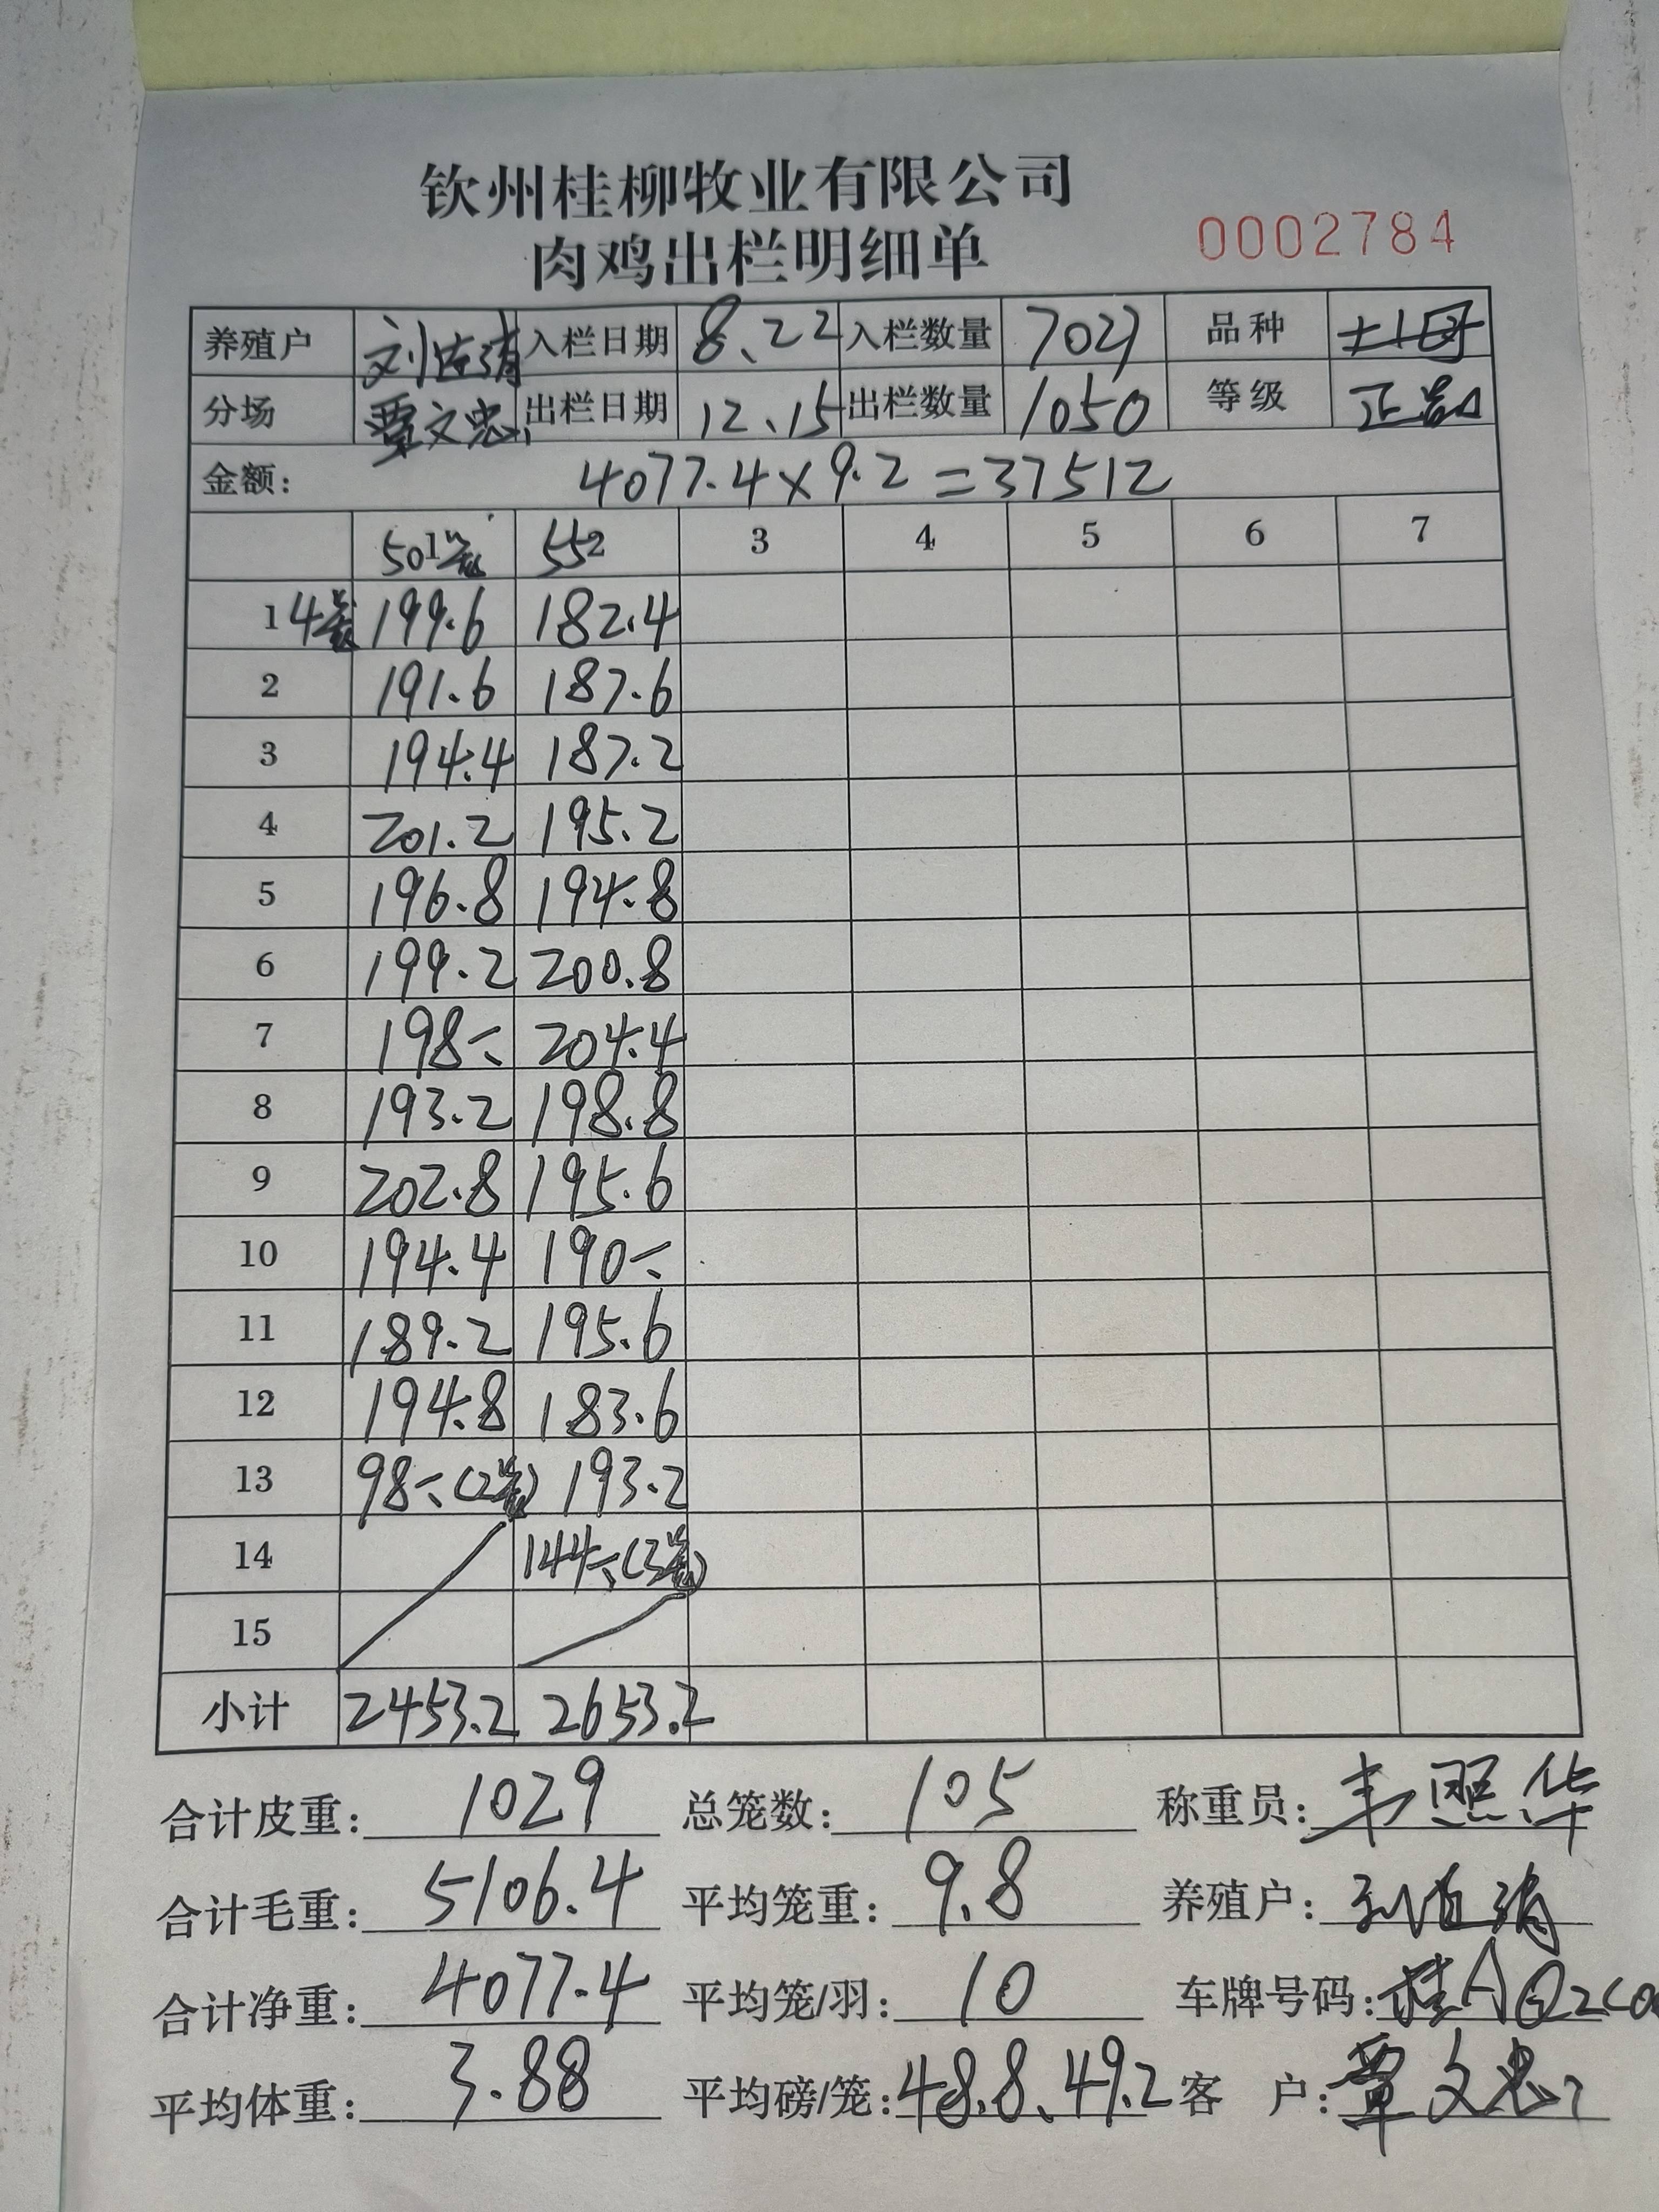 钦州桂柳牧业有限公司
肉鸡出栏明细单 0002784
养殖户 入栏日期 8.22 入栏数量 品种 土1母
分场 覃文忠 出栏日期 12.15 出栏数量 1050 等级 正品
金额: 4077.4×9.2=37512
50笼 552 3 4 5 6 7
1 4笼 199.6 182.4
2 191.6 187.6
3 194.4 187.2
4 201.2 195.2
5 196.8 194.8
6 199.2 200.8
7 198 204.4
8 193.2 198.8
9 202.8 195.6
10 194.4 190
11 189.2 195.6
12 194.8 183.6
13 98(2笼) 193.2
14 144(3笼)
15
小计 2453.2 2653.2
合计皮重: 1029 总笼数: 105 称重员: 韦照华
合计毛重: 5106.4 平均笼重: 9.8 养殖户:
合计净重: 4077.4 平均笼/羽: 10 车牌号码:
平均体重: 3.88 平均磅/笼: 48.8、49.2 客 户: 覃文忠